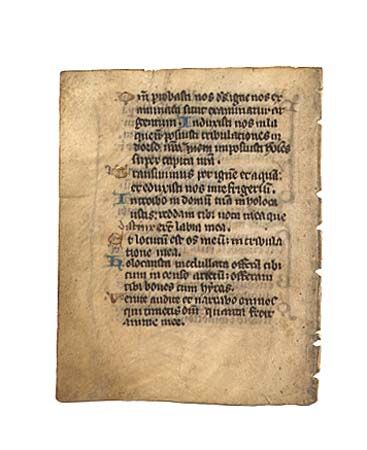 Qm̄ probasti nos ds̄ igne nos ex
aminasti sicut examinatur ar
gentum Induxisti nos in la
queum posuisti tribulationes in
dorso nr̄o im posuisti hōies
super capita nr̄a.
Transiuimus per ignē et aquā
et eduxisti nos in refrigeriū.
Introibo in domū tuā in holoca
ustis reddam tibi uota mea que
distinxerūt labia mea.
Et locutum est os meū in tribula
tione mea.
Holocausta medullata offerā tibi
cum incenso arietū offeram
tibi boues cum hyrcis.
Uenite audite et narrabo omēs
qui timetis dm̄ quanta fecit
anime mee.